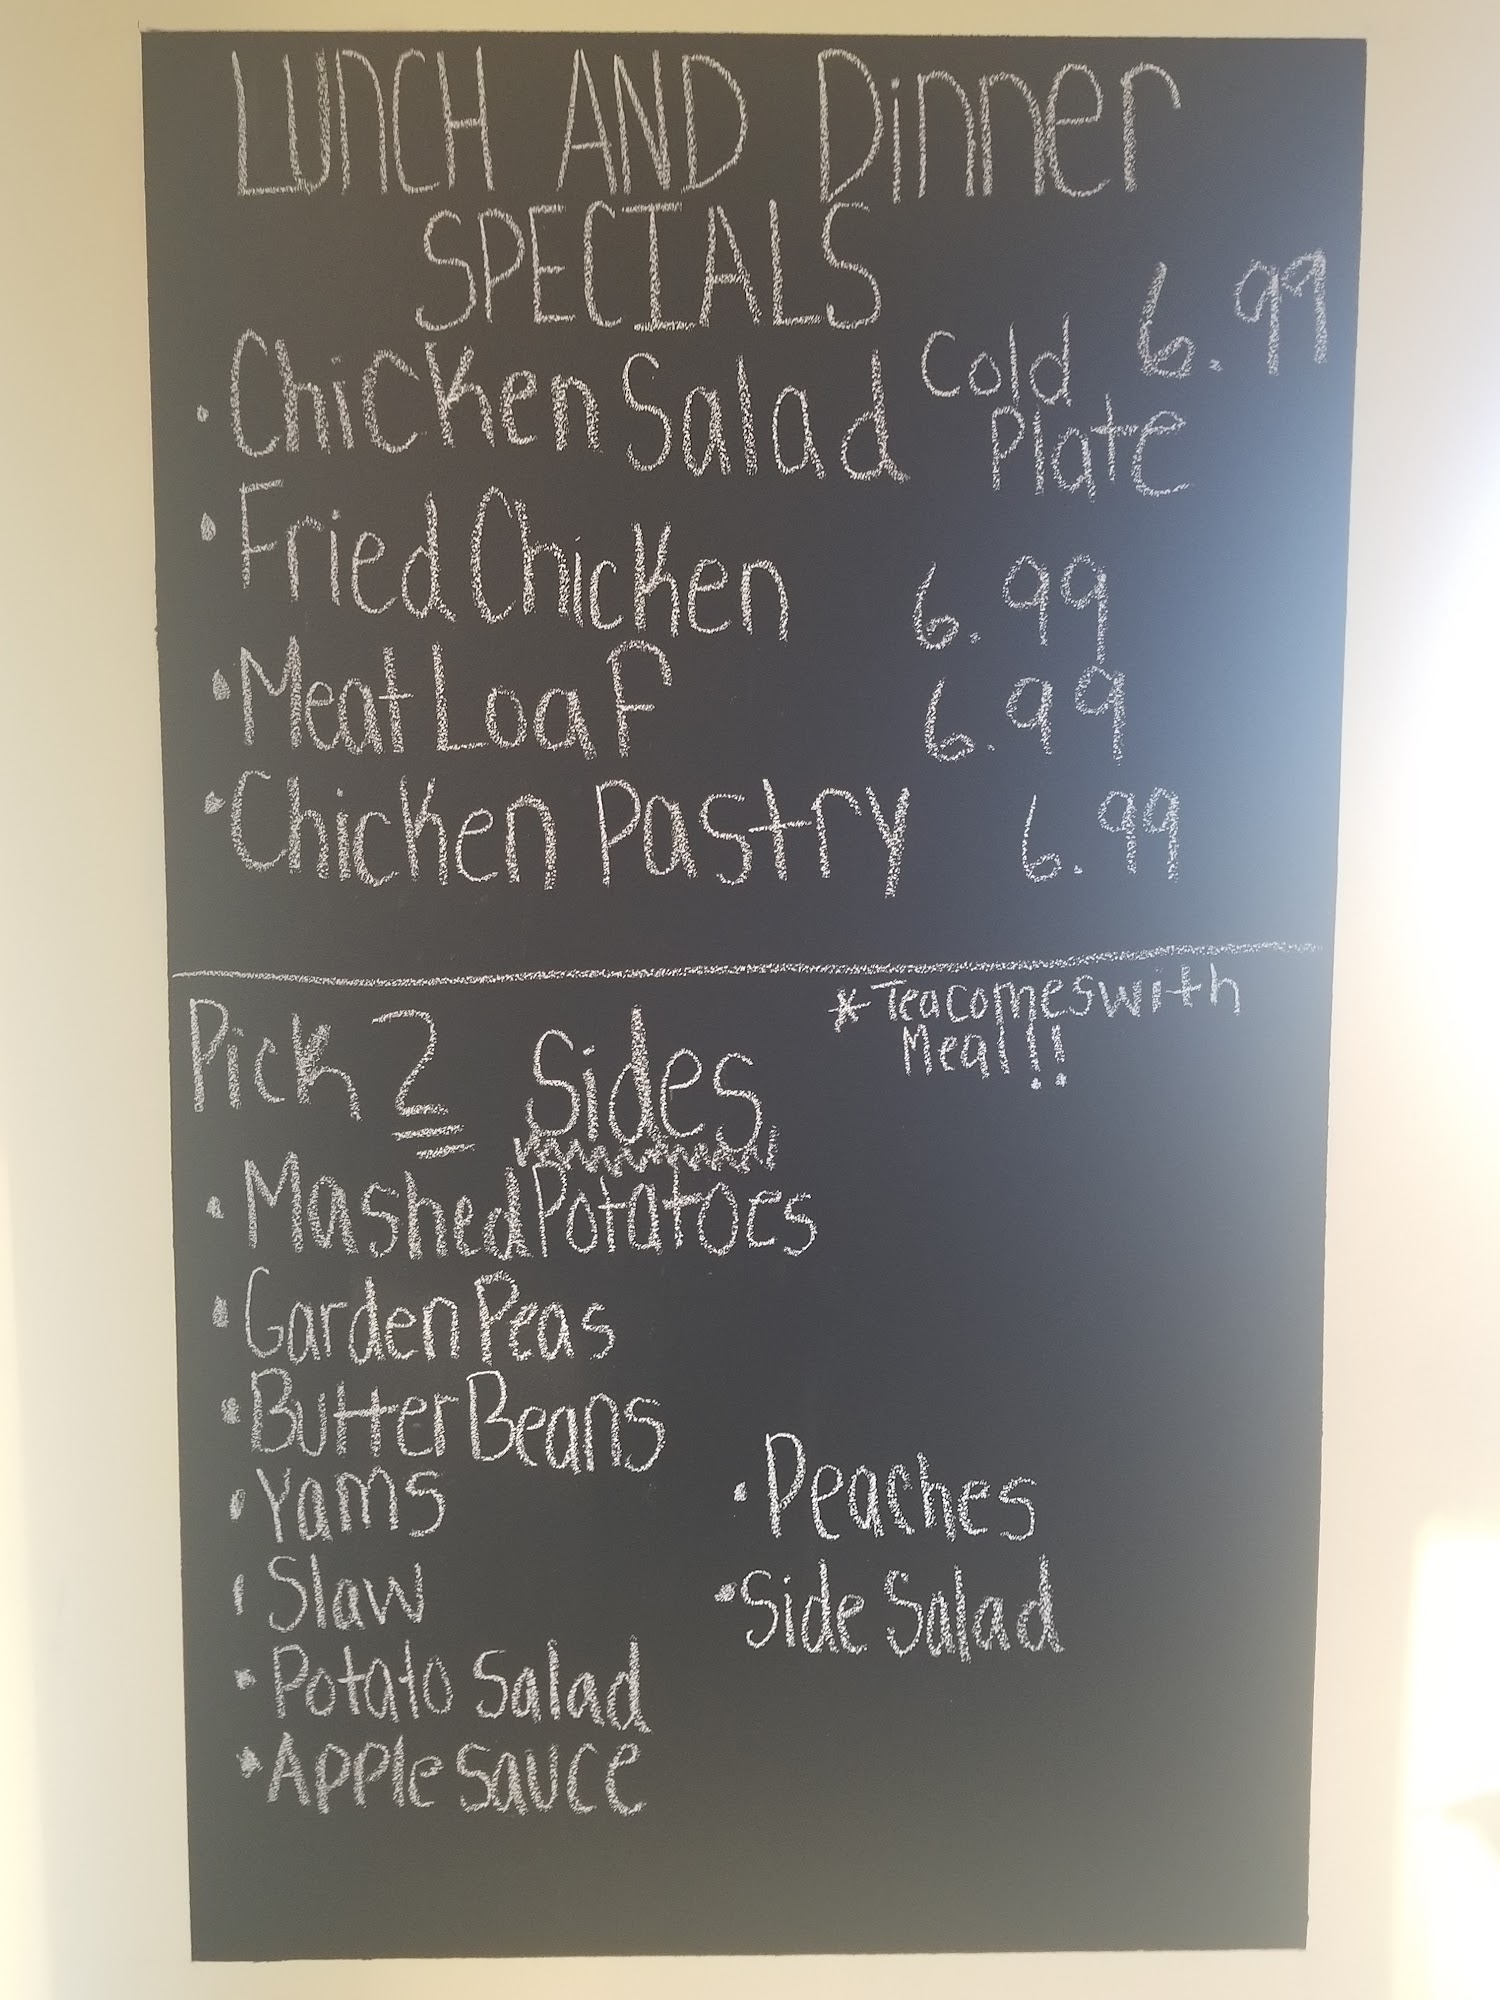 LUnCH AND Dinner
SPECIALS
• Chicken Salad Cold Plate 6.99
• Fried Chicken 6.99
• Meat Loaf 6.99
• Chicken Pastry 6.99
Pick 2 Sides
* Tea comes with
Meal!!
• Mashed Potatoes
• Garden Peas
• Butter Beans
• Yams
• Slaw
• Potato Salad
• Apple Sauce
• Peaches
• Side Salad